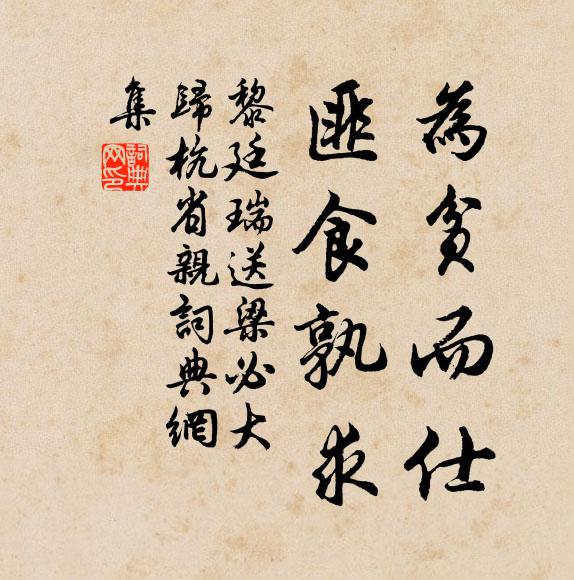 為貧而仕
匪食孰求
黎廷瑞送梁必大
歸杭省親詞典網
集
詞典
網印